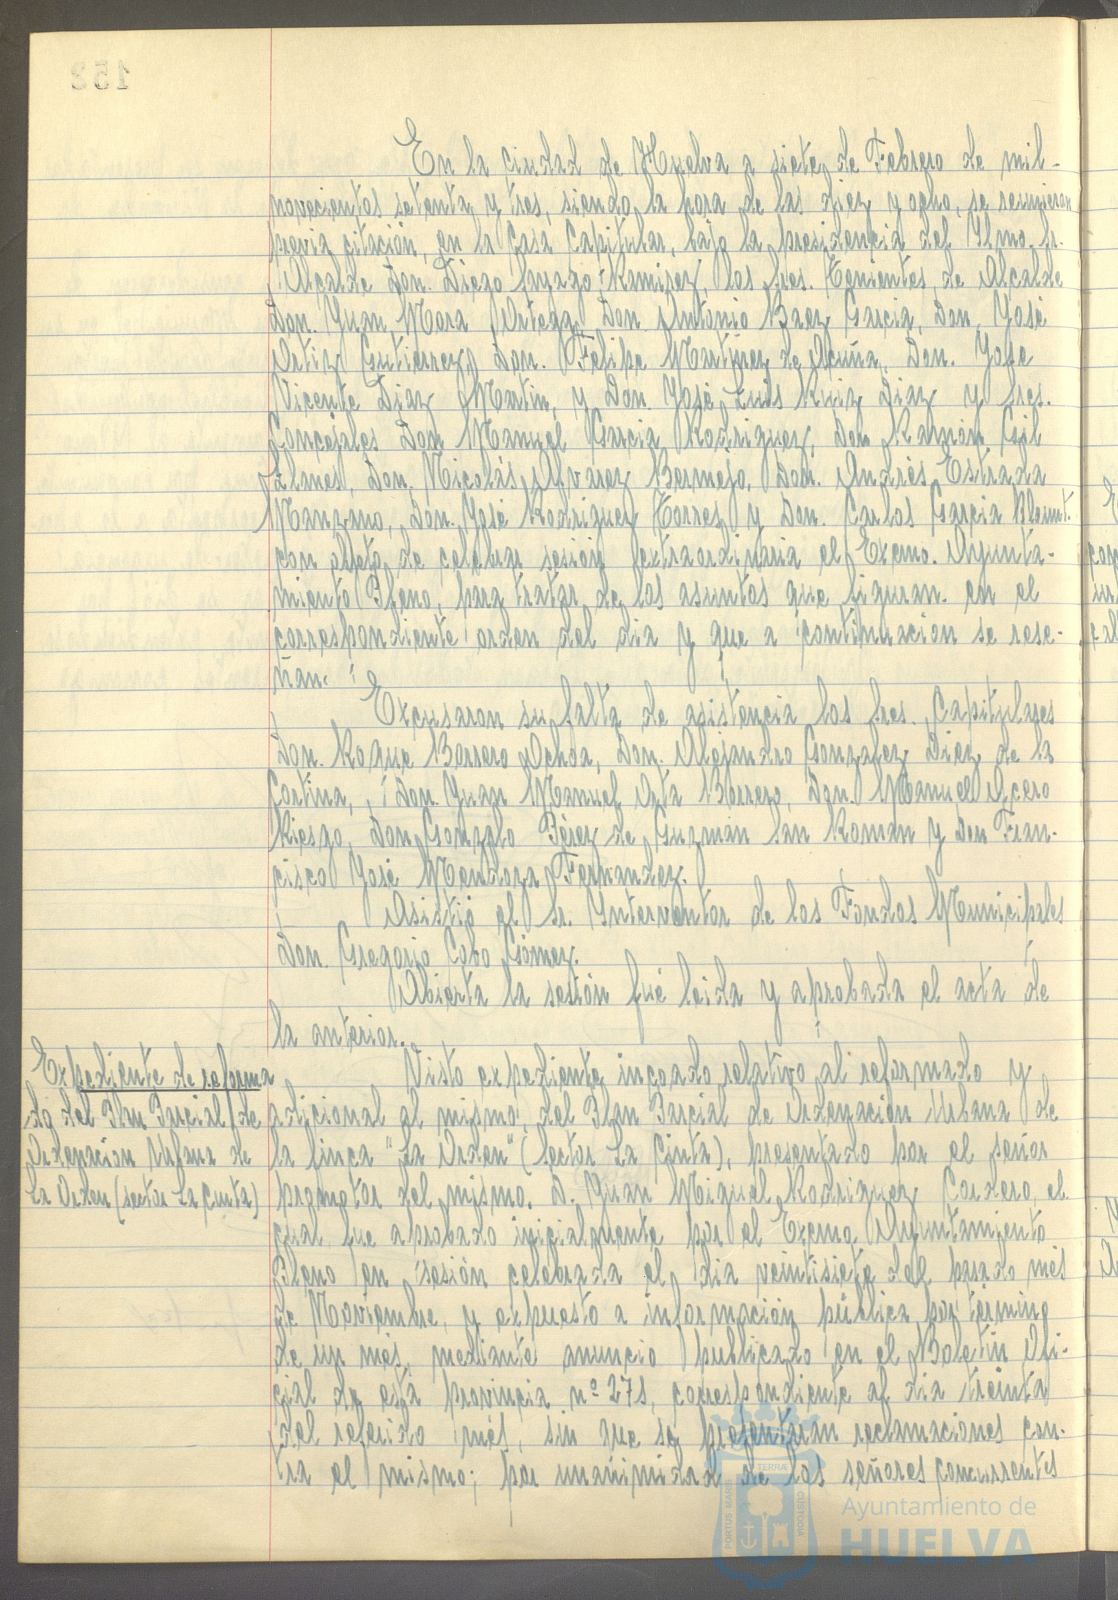 En la Ciudad de Huelva a siete de Febrero de mil-
novecientos setenta y tres, siendo la hora de las diez y ocho, se reunieron
previa citación, en la Casa Capitular, bajo la presidencia del Ilmo. Sr.
Alcalde Don. Diego Ramirez, los Sres. Tenientes de Alcalde
Don. Juan Mora Ortega, Don Antonio Baez Garcia, Don. José
Ortiz Gutierrez, Don. Felipe Martinez de Acuña, Don. Jose
Vicente Diaz Martin, y Don José Luis Ruiz Diaz y Sres.
Concejales Don Manuel Garcia Rodriguez, Don Ramón Gil
Llanes, Don. Nicolás Alvarez Bermejo, Don. Andrés Estrada
Manzano, Don. José Rodriguez Torres y Don. Carlos Garcia
con objeto de celebrar sesión extraordinaria el Excmo. Ayunta-
miento Pleno, para tratar de los asuntos que figuran en el
correspondiente orden del dia y que a continuacion se rese-
ñan.
Excusaron su falta de asistencia los Sres. Capitulares
Don. Roque Barrero Ochoa, Don. Alejandro Gonzalez Diez de la
Cortina, Don. Juan Manuel Orta Borrero, Don. Manuel Acero
Riesgo, Don Gonzalo Pérez de Guzman San Roman y Don Fran-
cisco José Mendoza Fernandez.
Asistió el Sr. Interventor de los Fondos Municipales
Don. Gregorio Cobo Gómez.
Abierta la sesión fué leida y aprobada el acta de
la anterior.
Expediente de reforma
do del Plan Parcial de
Ordenacion Urbana de
La Orden (sector La Cinta)
Visto expediente incoado relativo al reformado y
adicional al mismo, del Plan Parcial de Ordenación Urbana de
la finca "La Orden" (Sector La Cinta), presentado por el señor
promotor del mismo. D. Juan Miguel Rodriguez Cordero, el
cual fue aprobado inicialmente por el Excmo. Ayuntamiento
Pleno en sesión celebrada el dia veintisiete del pasado mes
de Noviembre, y expuesto a información pública por término
de un mes, mediante anuncio publicado en el Boletin Ofi-
cial de esta provincia nº 271, correspondiente al dia treinta
del referido mes, sin que se presentaran reclamaciones con-
tra el mismo; por unanimidad de los señores concurrentes
Ayuntamiento de
HUELVA
PORTUS MARIS
TERRAE
CUSTODIA